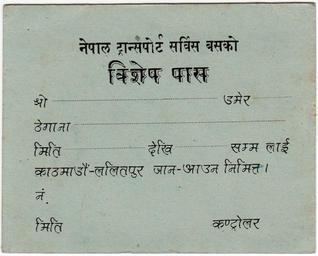 नेपाल ट्रान्सपोर्ट सर्विस बसको
विशेष पास
श्री उमेर
ठेगाना
मिति देखि सम्म लाई
काठमाडौं-ललितपुर जान-आउन निमित्त।
नं.
मिति कण्ट्रोलर